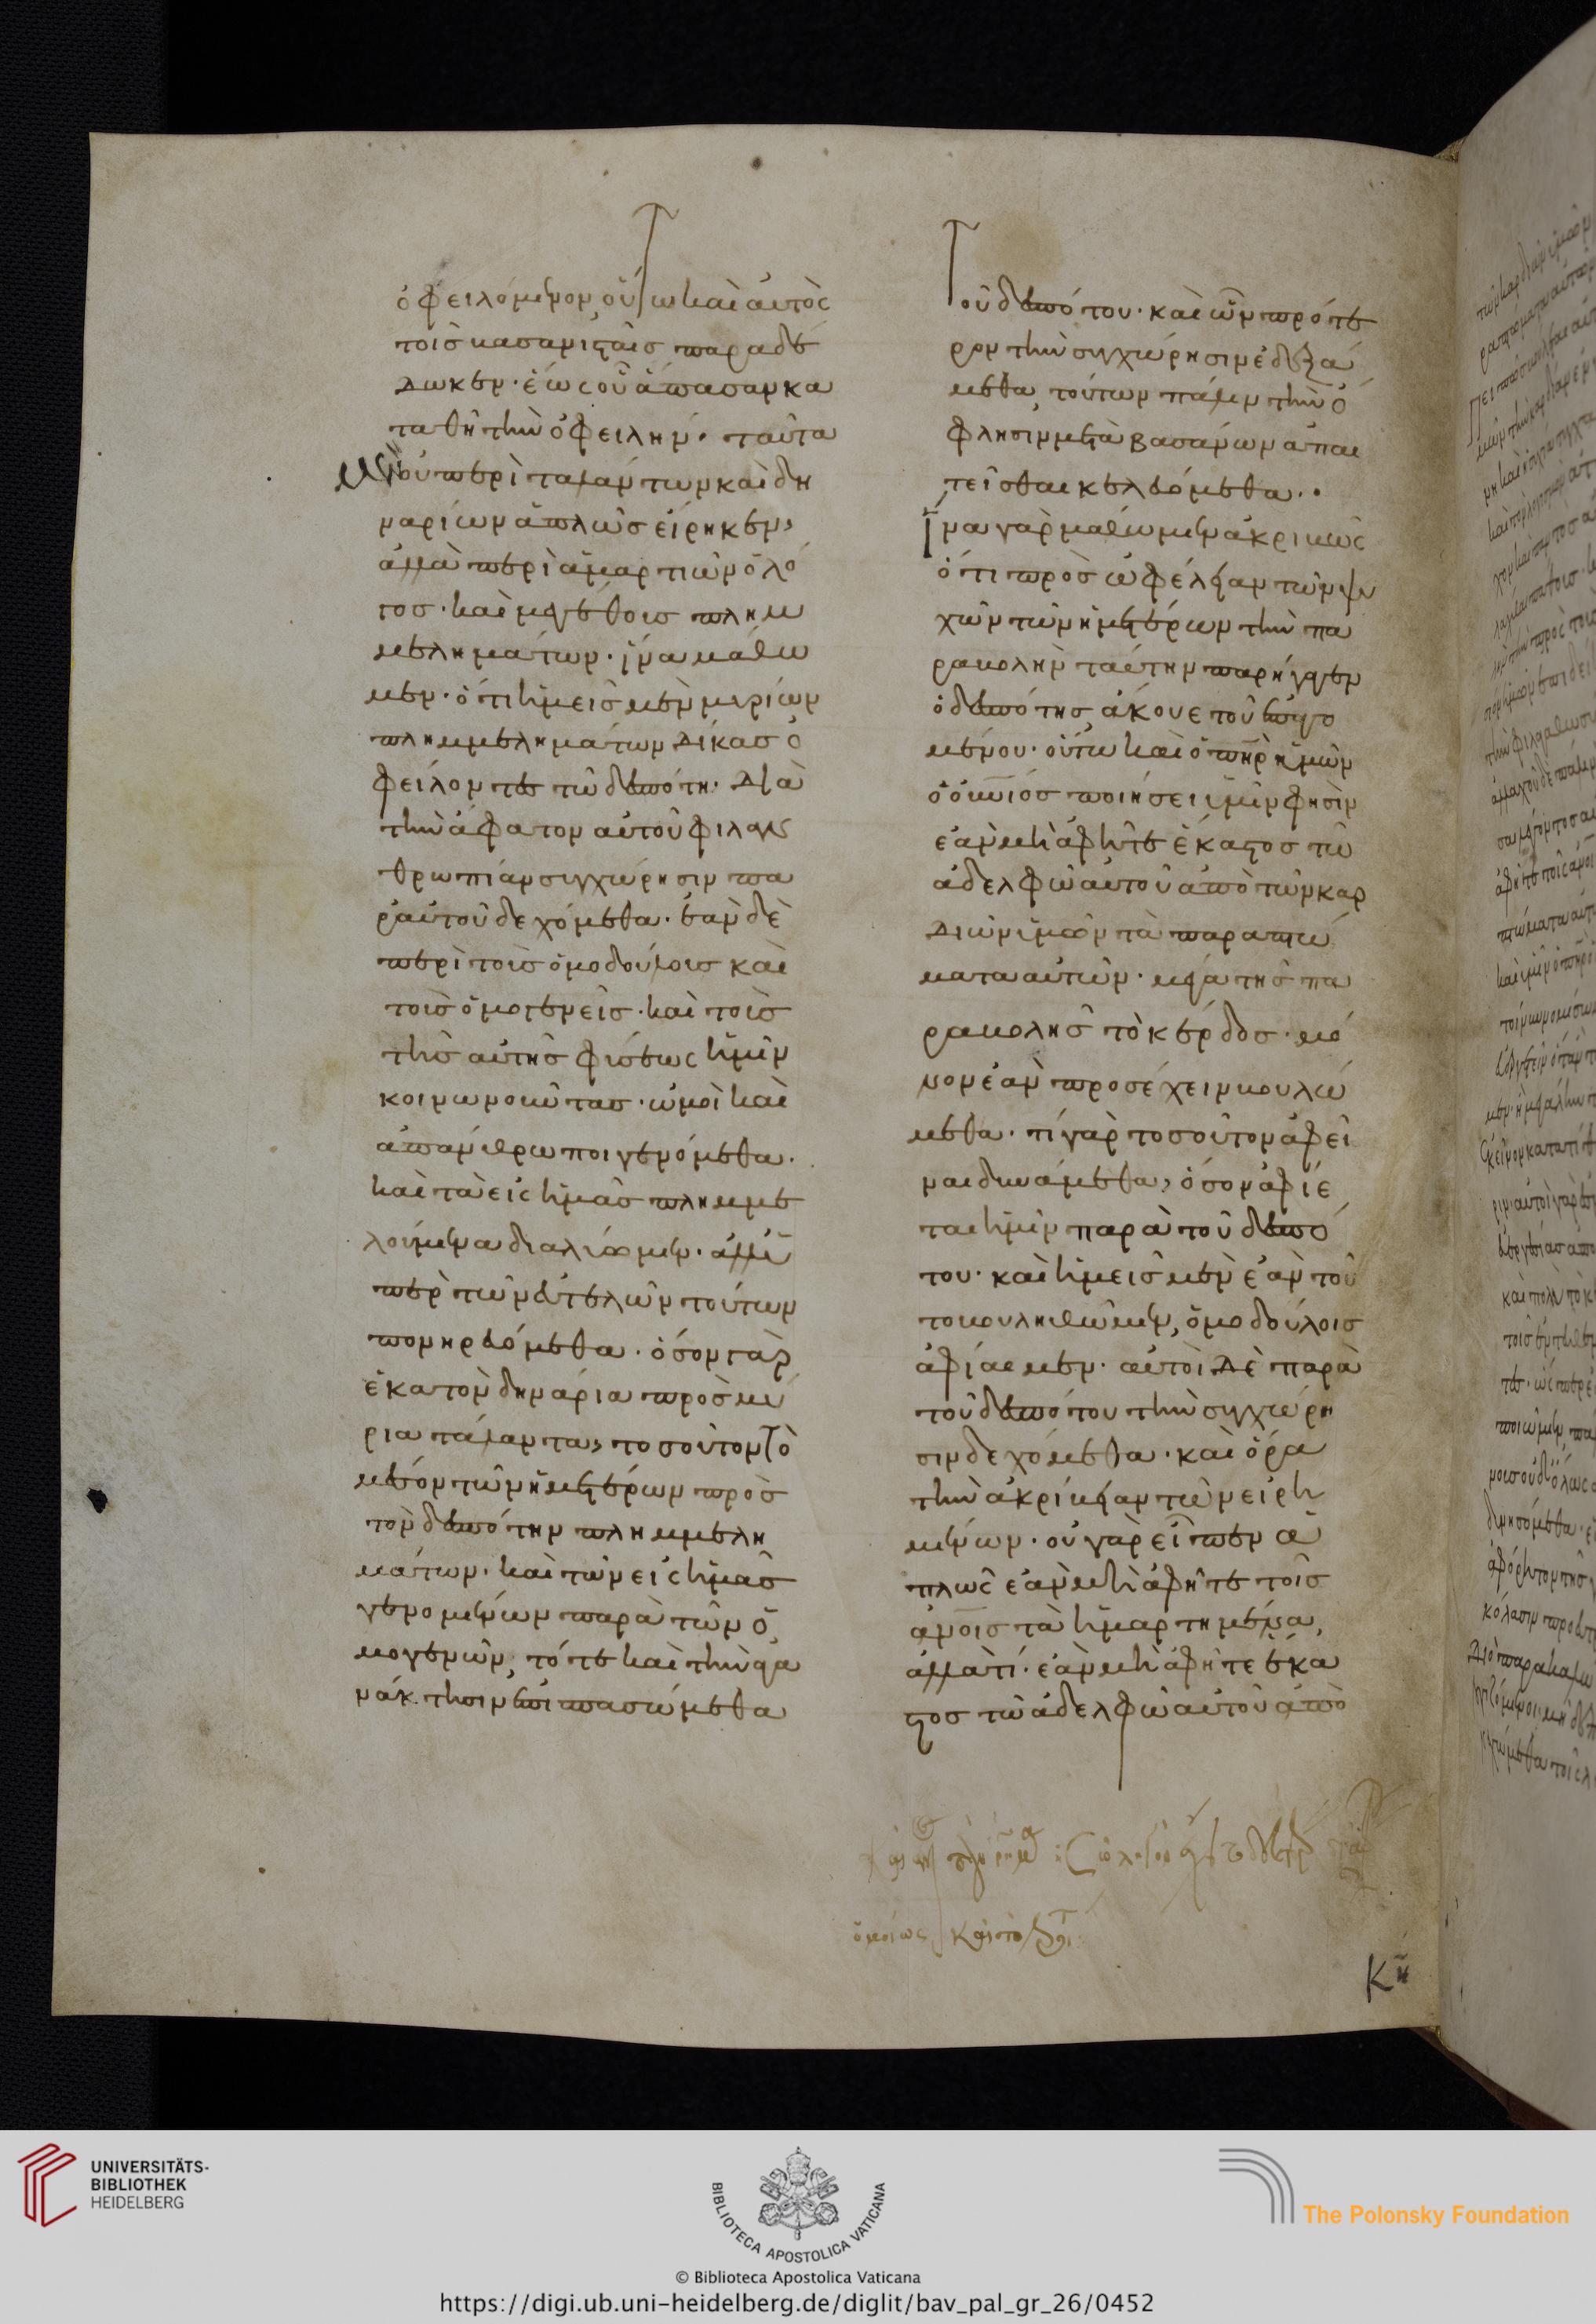 ὀφειλόμενον, οὕτω καὶ αὐτὸς
τοῖς βασανισταῖς παραδέ
δωκεν· ἕως οὗ ἅπασαν κα
ταθῇ τὴν ὀφειλήν· ταῦτα
οὐ περὶ ταλάντων καὶ δη
ναρίων ἁπλῶς εἴρηκεν,
ἀλλὰ περὶ ἁμαρτιῶν ὁ λό
γος· καὶ μεγέθους πλημ
μελημάτων· ἵνα μάθω
μεν· ὅτι ἡμεῖς μὲν μυρίων
πλημμελημάτων δίκας ὀ
φείλοντες τῷ δεσπότῃ· διὰ
τὴν ἄφατον αὐτοῦ φιλαν
θρωπίαν συγχώρησιν πα
ρ' αὐτοῦ δεχόμεθα· ἐὰν δὲ
περὶ τοῖς ὁμοδούλοις καὶ
τοῖς ὁμογενεῖς· καὶ τοῖς
τῆς αὐτῆς φύσεως ἡμῖν
κοινωνοῦντας· ὠμοὶ καὶ
ἀπάνθρωποι γενόμεθα·
καὶ τὰ εἰς ἡμᾶς πλημμε
λούμενα διαλύσωμεν· ἀλλ' ὑ
πὲρ τῶν εὐτελῶν τούτων
πονηρευόμεθα· ὅσον γὰρ
ἑκατὸν δηνάρια πρὸς μύ
ρια τάλαντα, τοσοῦτον τὸ
μέσον τῶν ἡμετέρων πρὸς
τὸν δεσπότην πλημμελη
μάτων· καὶ τῶν εἰς ἡμᾶς
γενομένων παρὰ τῶν ὁ
μογενῶν, τότε καὶ τὴν ἀγα
νάκτησιν ἐπισπασώμεθα
Τοῦ δεσπότου· καὶ ὧν πρότε
ρον τὴν συγχώρησιν ἐδεξά
μεθα, τούτων πάλιν τὴν ὄ
φλησιν μετὰ βασάνων ἀπαι
τεῖσθαι κελευόμεθα··
ἵνα γὰρ μάθωμεν ἀκριβῶς
ὅτι πρὸς ὠφέλειαν τῶν ψυ
χῶν τῶν ἡμετέρων τὴν πα
ραβολὴν ταύτην παρήγαγεν
ὁ δεσπότης, ἄκουε τοῦ ἐπαγο
μένου· οὕτω καὶ ὁ πηρ ἡμῶν
ὁ οὐνιος ποιήσει ὑμῖν φησὶν
ἐὰν μὴ ἀφῆτε ἕκαστος τῷ
ἀδελφῷ αὐτοῦ ἀπὸ τῶν καρ
διῶν ὑμῶν τὰ παραπτώ
ματα αὐτῶν· μέγα τῆς πα
ραβολῆς τὸ κέρδος· μό
νον ἐὰν προσέχειν βουλώ
μεθα· τί γὰρ τοσοῦτον ἀφεῖ
ναι δυνάμεθα, ὅσον ἀφίε
ται ἡμῖν παρὰ τοῦ δεσπό
του· καὶ ἡμεῖς μὲν ἐὰν τοῦ
το βουληθῶμεν, ὁμοδούλοις
ἀφίαμεν· αὐτοὶ δὲ παρὰ
τοῦ δεσπότου τὴν συγχώρη
σιν δεχόμεθα· καὶ ὅρα
τὴν ἀκρίβειαν τῶν εἰρη
μένων· οὐ γὰρ εἶπεν ἁ
πλῶς ἐὰν μὴ ἀφῆτε τοῖς
ἀνοις τὰ ἡμαρτημένα,
ἀλλὰ τί· ἐὰν μὴ ἀφῆτε ἕκα
στος τῷ ἀδελφῷ αὐτοῦ ἀπὸ
ὁμοίως
κη
UNIVERSITÄTS-
BIBLIOTHEK
HEIDELBERG
BIBLIOTECA APOSTOLICA VATICANA
The Polonsky Foundation
© Biblioteca Apostolica Vaticana
https://digi.ub.uni-heidelberg.de/diglit/bav_pal_gr_26/0452